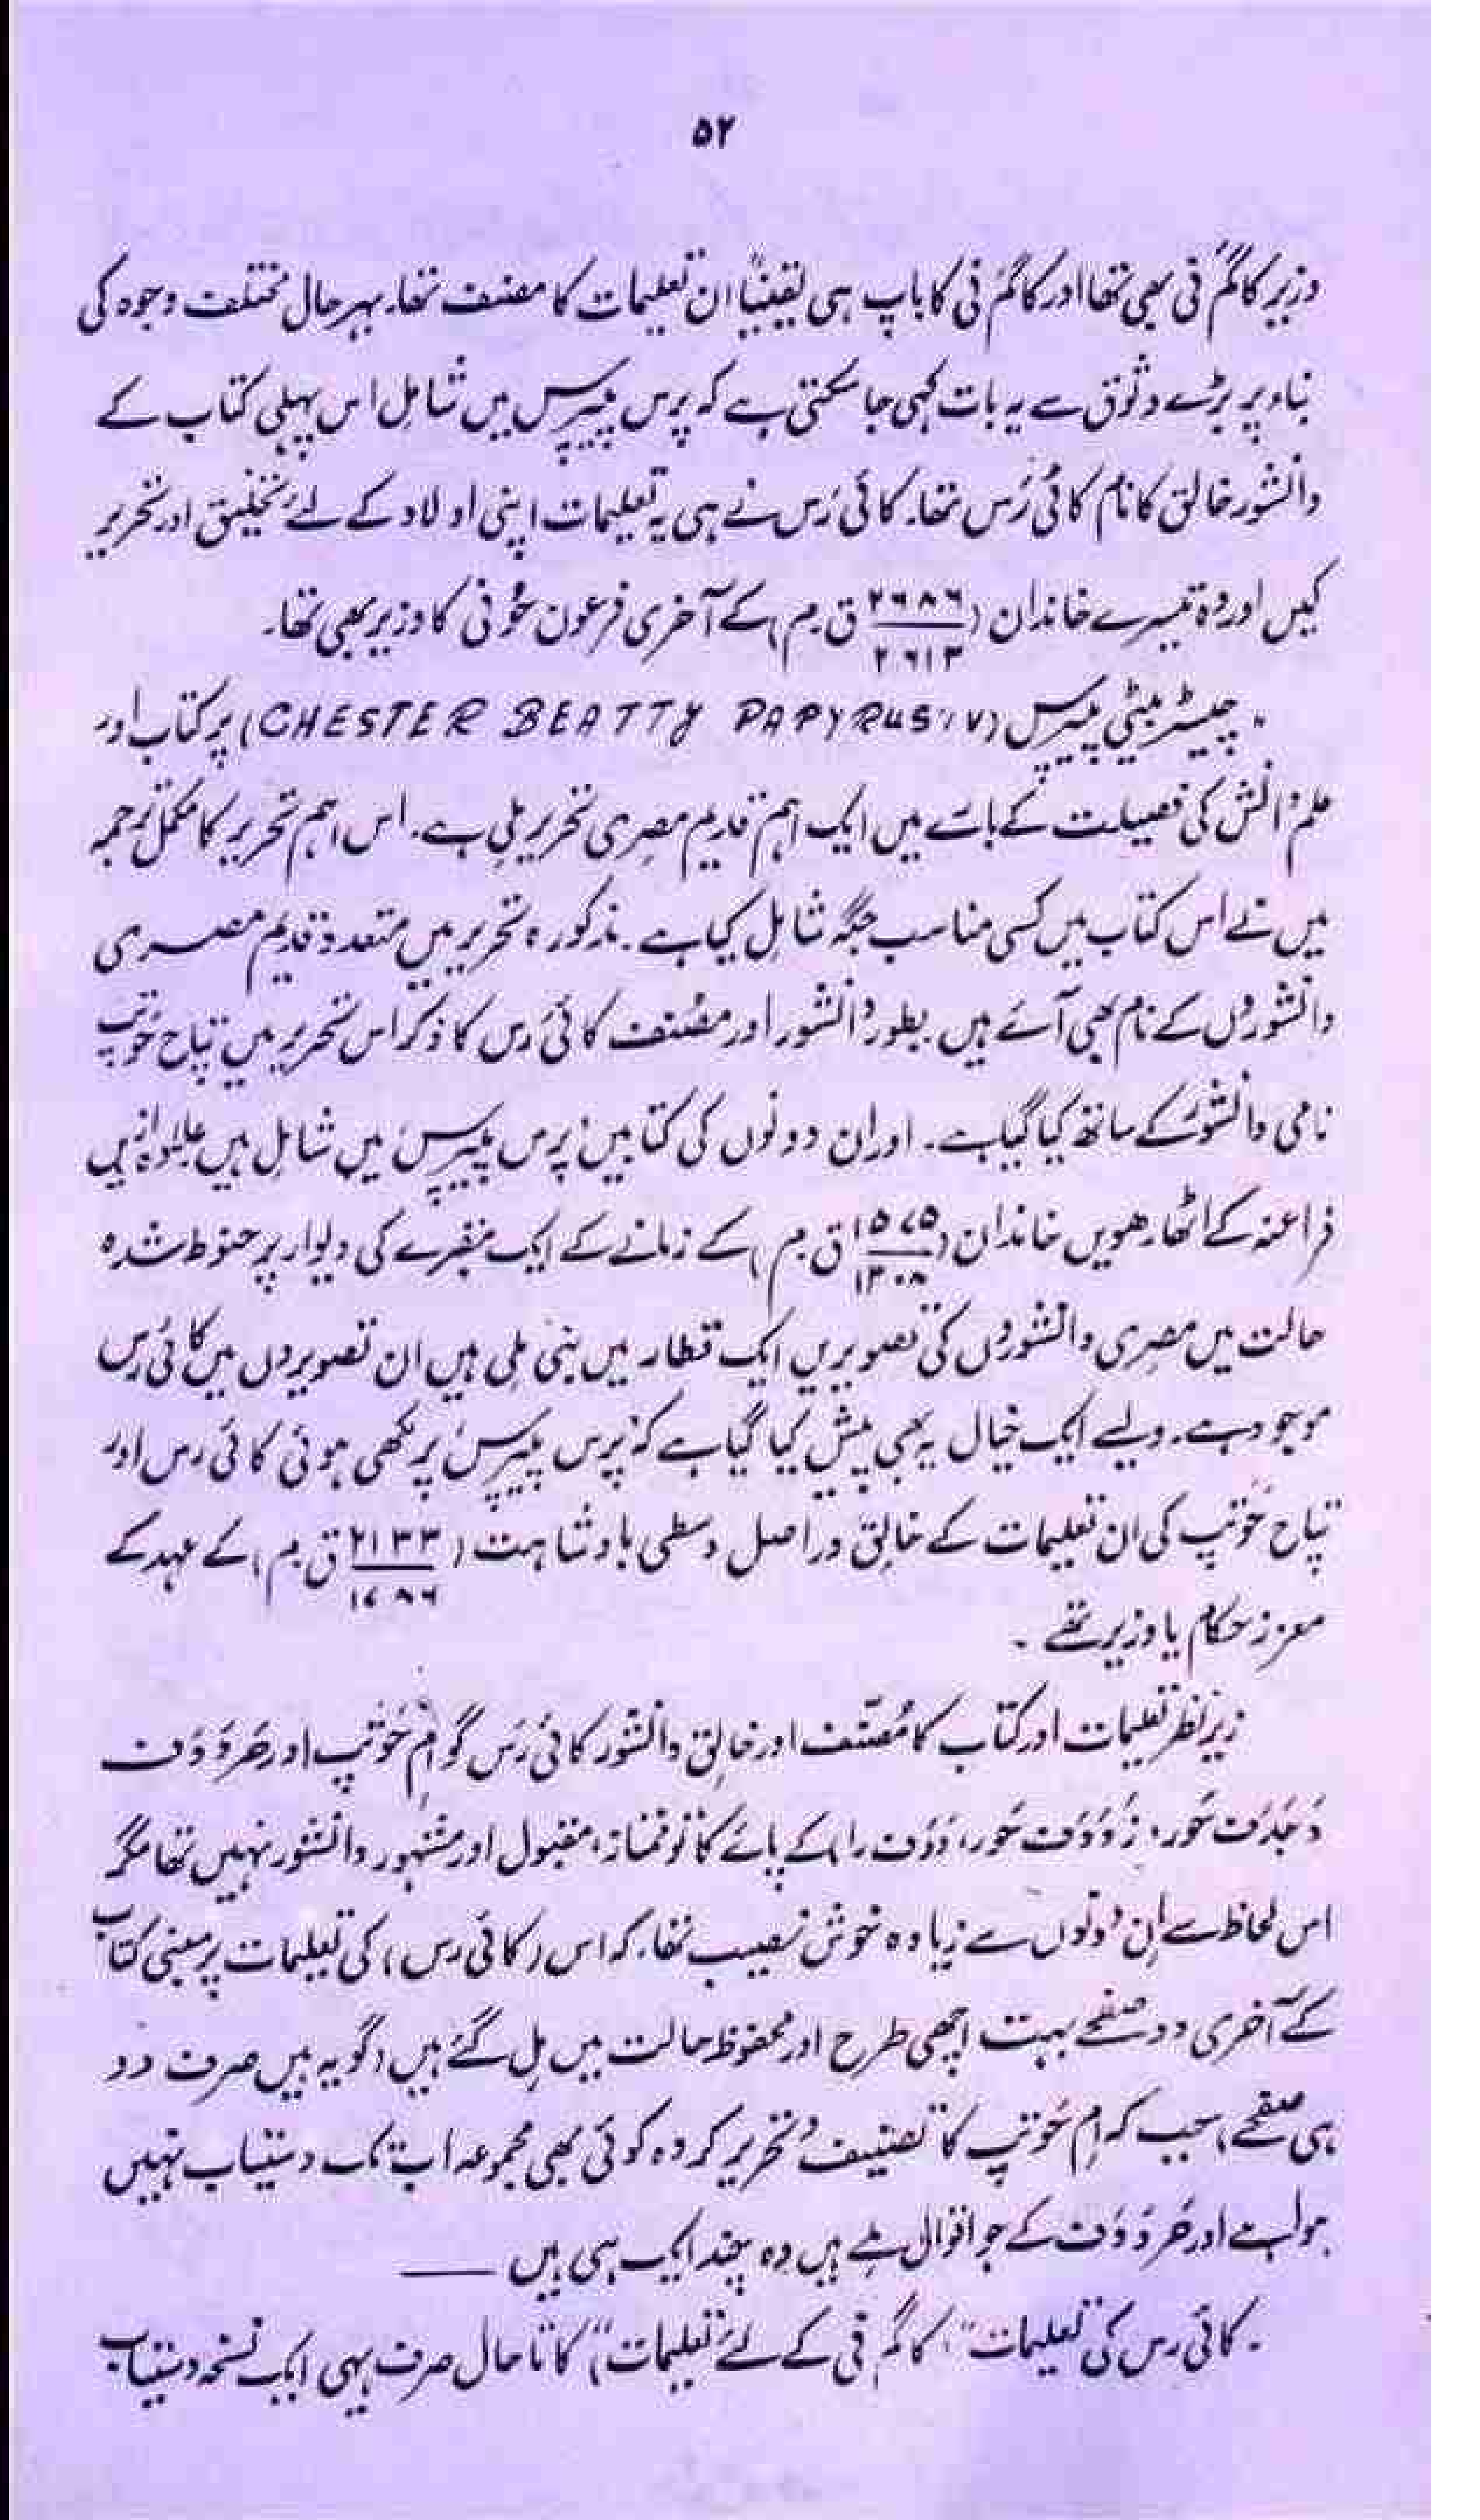 ۵۲
وزیر کاگم نی بھی تھا اور کاگم نی کا باپ ہی یقیناً ان تعلیمات کا مصنف تھا۔ بہرحال مختلف وجوہ کی
بناء پر بڑے وثوق سے یہ بات کہی جا سکتی ہے کہ پرس پیپرس میں شامل اس پہلی کتاب کے
دانشور خالق کا نام کائی رَس تھا۔ کائی رَس نے ہی یہ تعلیمات اپنی اولاد کے لئے تخلیق اور تحریر
کیں اور وہ تیسرے خاندان (۲۶۸۶/۲۶۱۳ ق۔م) کے آخری فرعون حُونی کا وزیر بھی تھا۔
" چیسٹر بیٹی پیپرس (CHESTER BEATTY PAPYRUS IV) پر کتاب اور
علم و دانش کی فضیلت کے بارے میں ایک اہم قدیم مصری تحریر ملی ہے۔ اس اہم تحریر کا مکمل ترجمہ
میں نے اس کتاب میں کسی مناسب جگہ شامل کیا ہے۔ مذکورہ تحریر میں متعدد قدیم مصری
دانشوروں کے نام بھی آئے ہیں۔ بطور دانشور اور مصنف کائی رس کا ذکر اس تحریر میں تپاح حوتپ
نامی دانشور کے ساتھ کیا گیا ہے۔ اور ان دونوں کی کتابیں پرس پیپرس میں شامل ہیں علاوہ ازیں
فراعنہ کے اٹھارھویں خاندان (۱۵۷۵/۱۳۰۸ ق۔م) کے زمانے کے ایک مقبرے کی دیوار پر حنوط شدہ
حالت میں مصری دانشوروں کی تصویریں ایک قطار میں بنی ملی ہیں ان تصویروں میں کائی رس
موجود ہے۔ ویسے ایک خیال یہ بھی پیش کیا گیا ہے کہ پرس پیپرس پر لکھی ہوئی کائی رس اور
تپاح حوتپ کی ان تعلیمات کے خالق دراصل وسطی بادشاہت (۲۱۳۳/۱۷۸۶ ق۔م) کے عہد کے
معزز حکام یا وزیر تھے۔
زیرِ نظر تعلیمات اور کتاب کا مُصنّف اور خالق دانشور کائی رَس گو اِم حَوتپ اور حَردَدَف
دَجدَف حَور، زَدَدَف حَور، دَدَف را) کے پائے کا تو ممتاز، مقبول اور مشہور دانشور نہیں تھا مگر
اس لحاظ سے اِن دونوں سے زیادہ خوش نصیب تھا۔ کہ اس (کائی رس) کی تعلیمات پر مبنی کتاب
کے آخری دو صفحے بہت اچھی طرح اور محفوظ حالت میں مِل گئے ہیں (گو یہ ہیں صرف دو
ہی صفحے) جب کہ اِم حَوتپ کا تصنیف و تحریر کردہ کوئی بھی مجموعہ اب تک دستیاب نہیں
ہوا ہے اور حَردَدَف کے جو اقوال ملے ہیں وہ چند ایک ہی ہیں ——
۔ کائی رس کی تعلیمات" (کاگم نی کے لئے تعلیمات") کا تا حال صرف یہی ایک نسخہ دستیاب